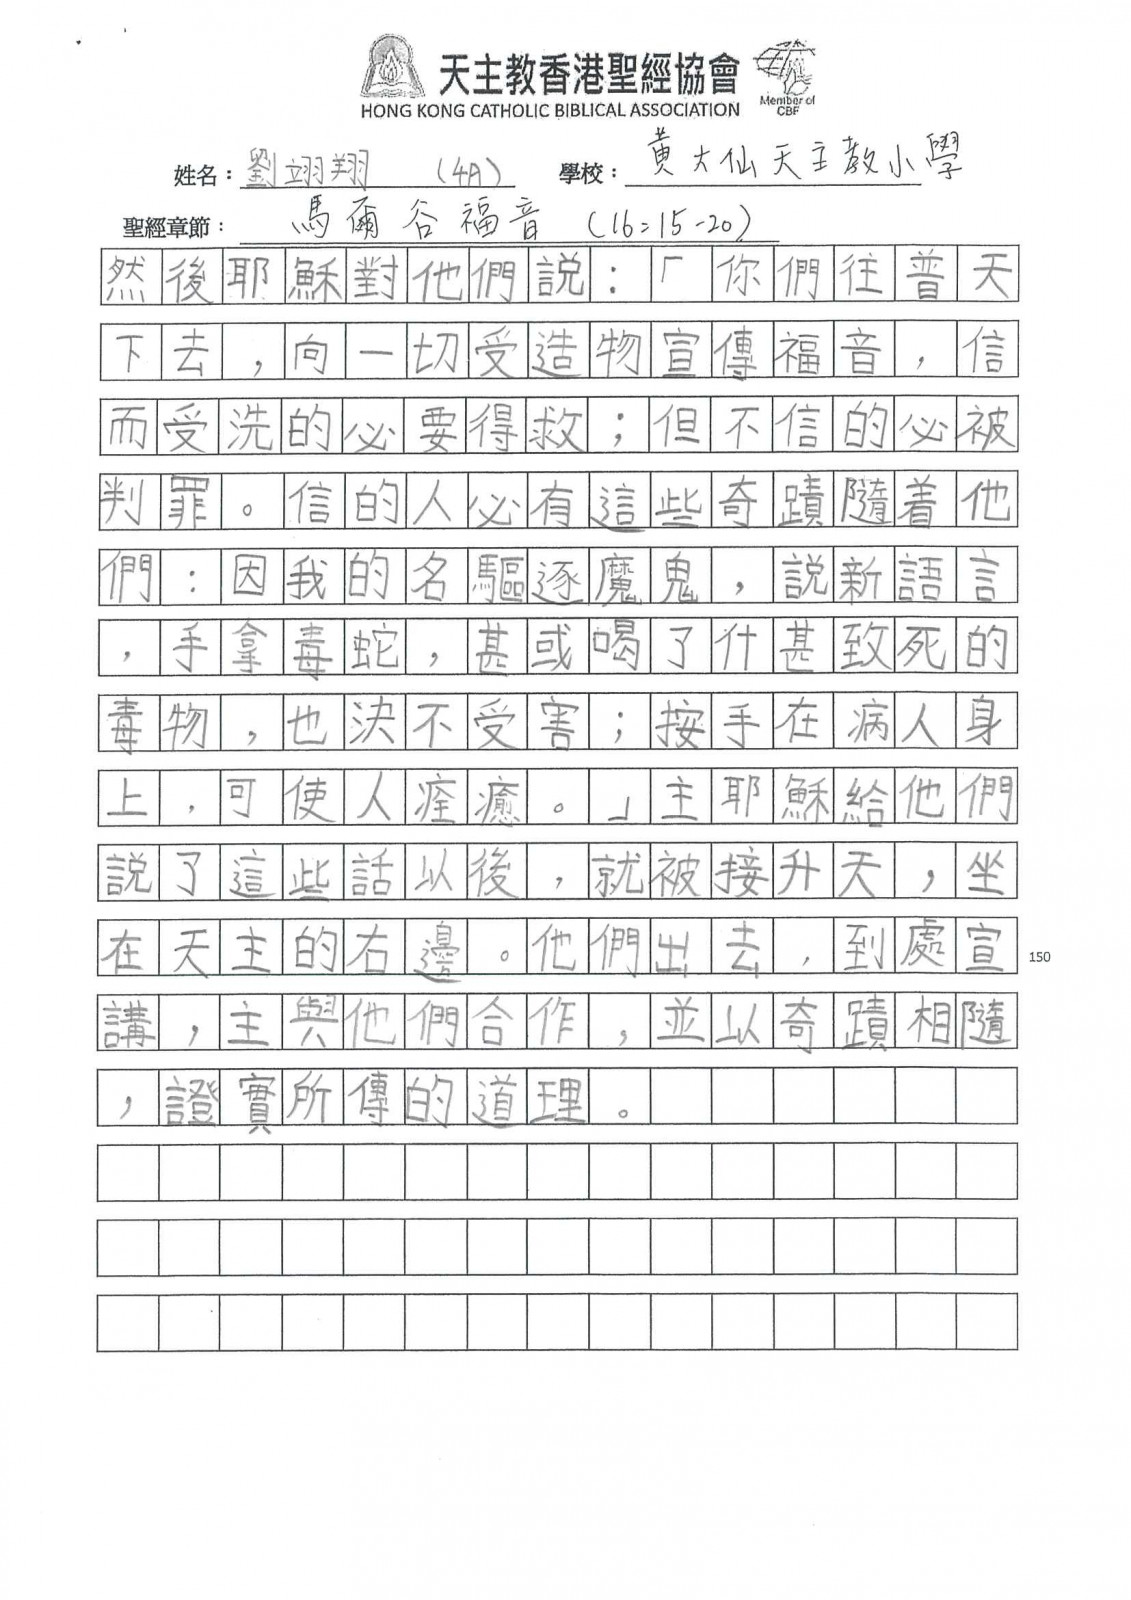 天主教香港聖經協會
HONG KONG CATHOLIC BIBLICAL ASSOCIATION
Member of
CBF
姓名：劉翊翔 (4A) 學校：黃大仙天主教小學
聖經章節：馬爾谷福音 (16:15-20)
然後耶穌對他們説：「你們往普天
下去，向一切受造物宣傳福音，信
而受洗的必要得救；但不信的必被
判罪。信的人必有這些奇蹟隨着他
們：因我的名驅逐魔鬼，説新語言
，手拿毒蛇，甚或喝了什甚致死的
毒物，也決不受害；按手在病人身
上，可使人痊癒。」主耶穌給他們
說了這些話以後，就被接升天，坐
在天主的右邊。他們出去，到處宣
150
講，主與他們合作，並以奇蹟相隨
，證實所傳的道理。